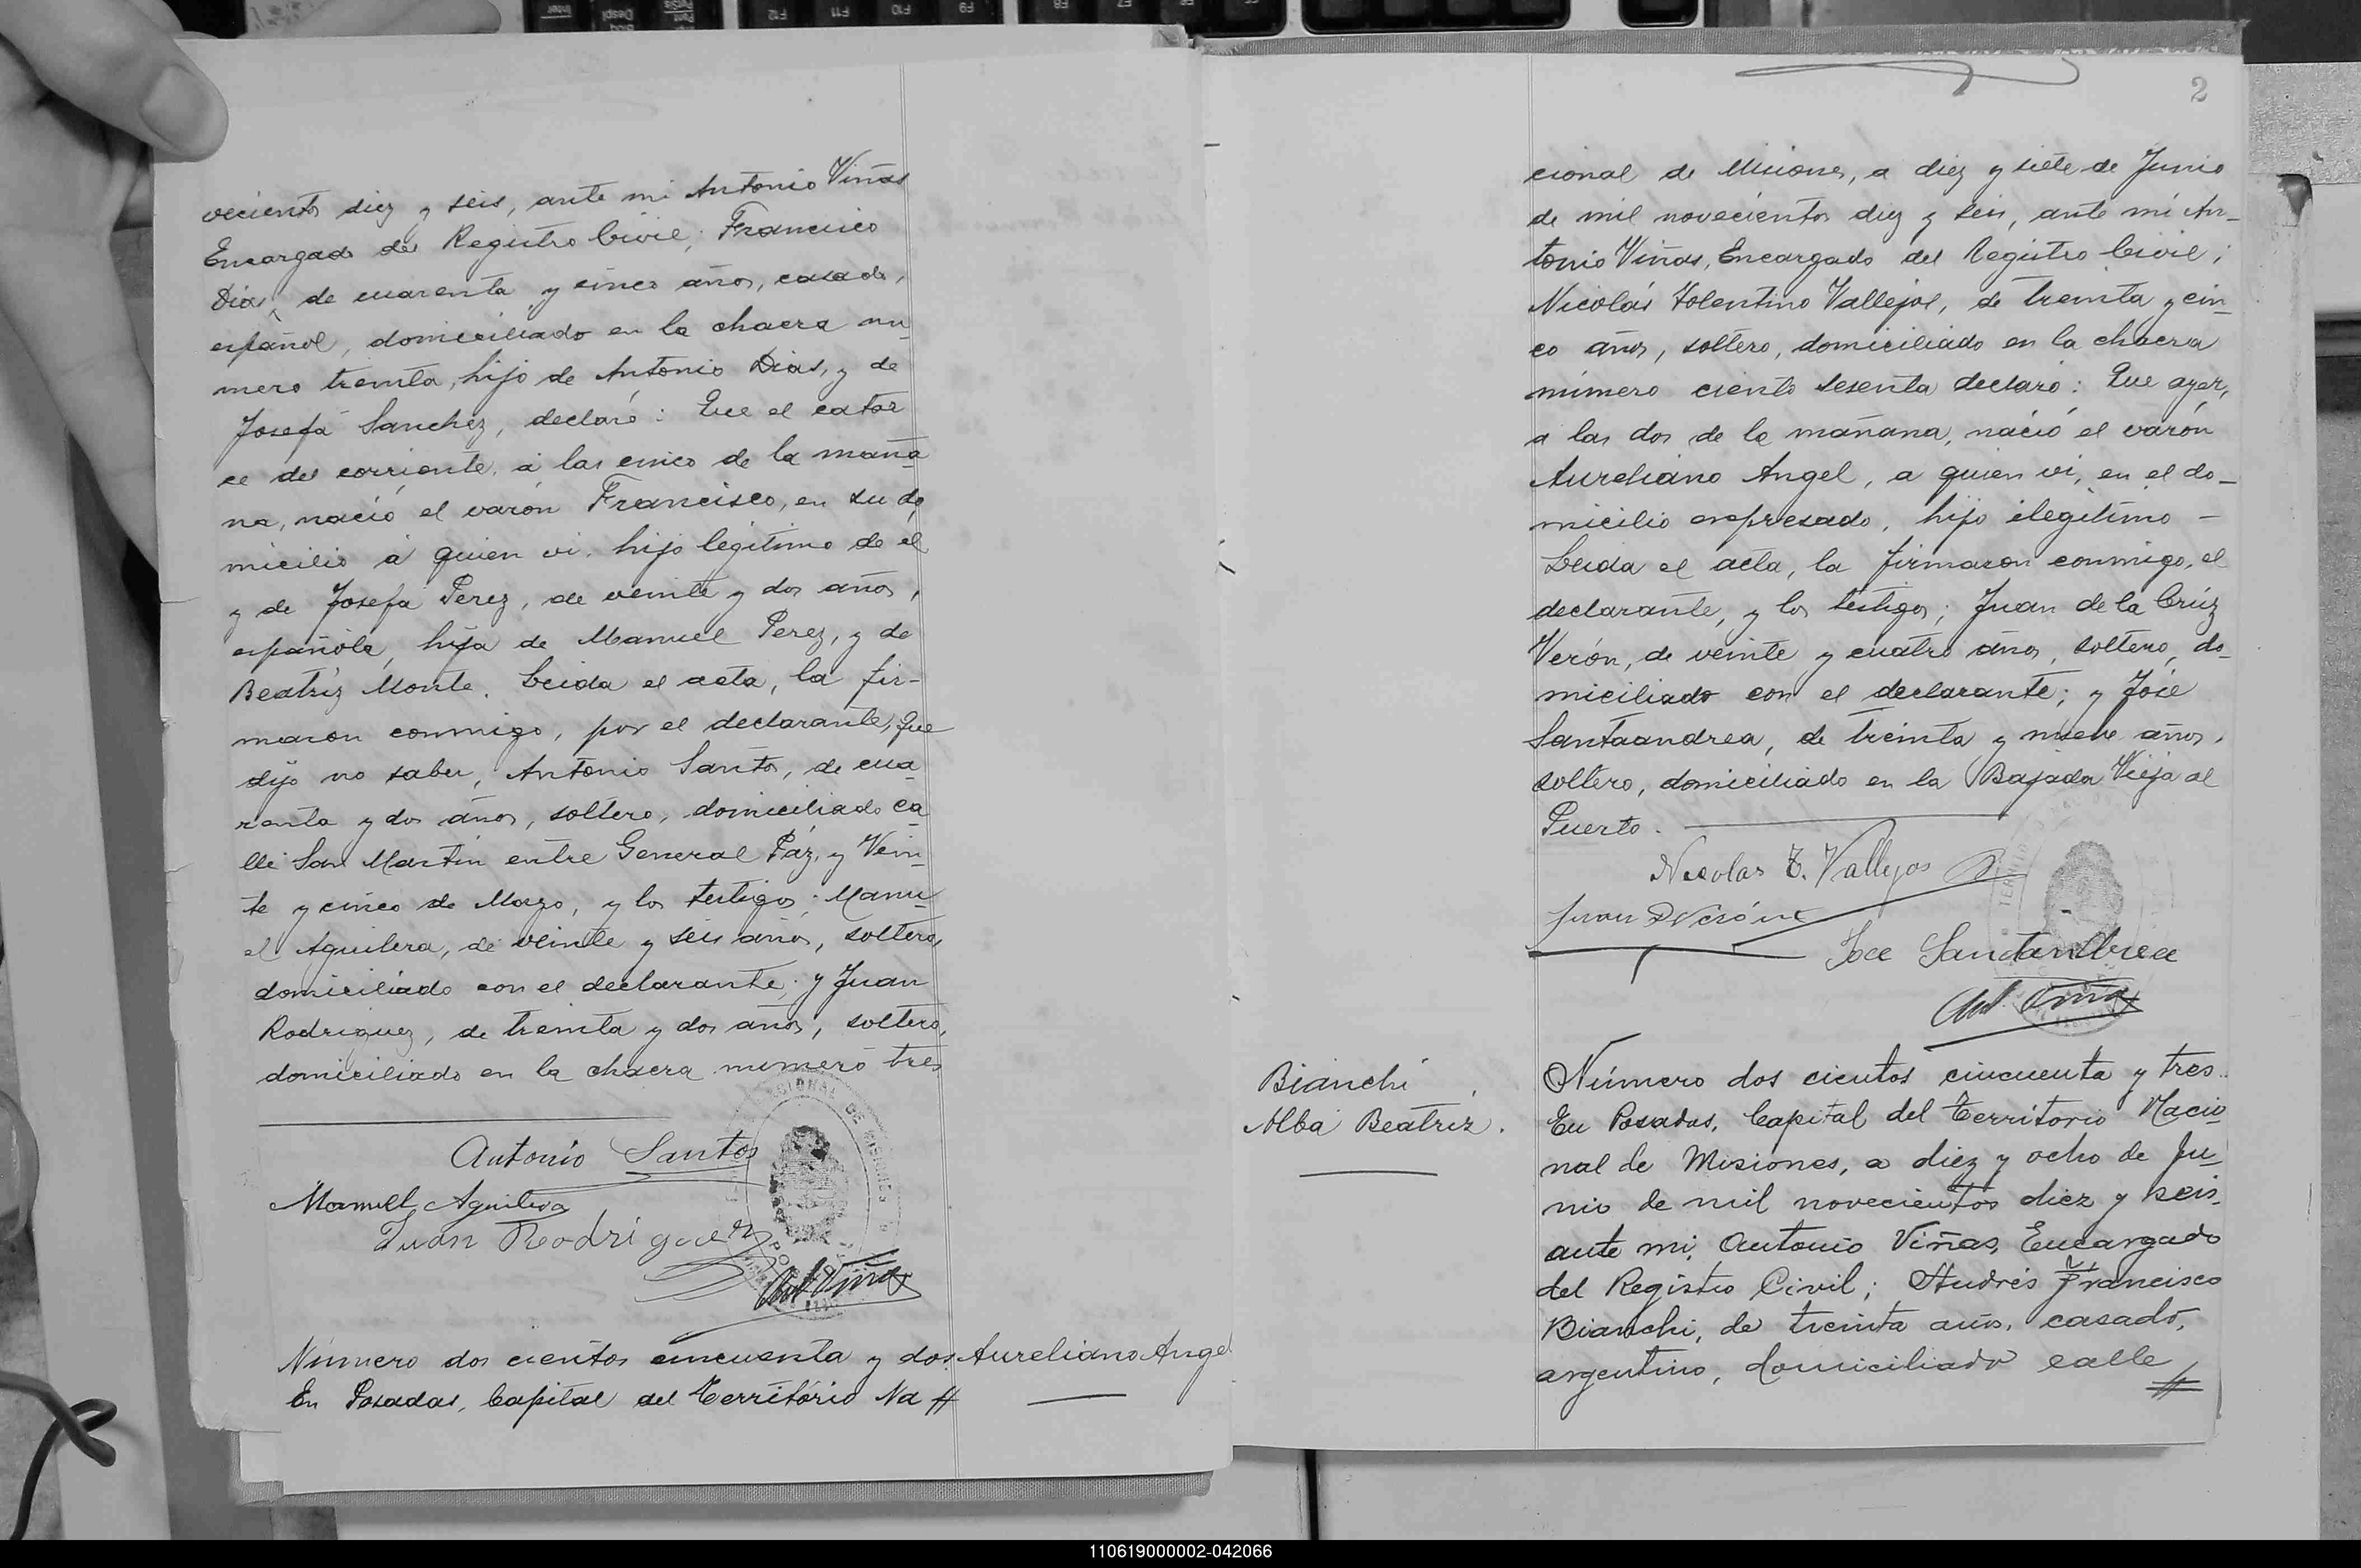 vecientos diez y seis, ante mi Antonio Viñas
Encargado del Registro Civil; Francisco
Dias, de cuarenta y cinco años, casado,
español, domiciliado en la chacra nu
mero treinta, hijo de Antonio Dias, y de
Josefa Sanchez, declaró: Que el cator
ce del corriente, á las cinco de la maña
na, nació el varón Francisco, en su do
micilio á quien vi. hijo legitimo de el
y de Josefa Perez, de veinte y dos años,
española, hija de Manuel Perez, y de
Beatriz Monte. Leida el acta, la fir-
maron conmigo, por el declarante, que
dijo no saber, Antonio Santos, de cua-
renta y dos años, soltero, domiciliado ca
lle San Martin entre General Páz, y Vein-
te y cinco de Mayo, y los testigos; Manu-
el Aguilera, de veinte y seis años, soltero,
domiciliado con el declarante; y Juan
Rodriguez, de treinta y dos años, soltero,
domiciliado en la chacra numero tres
Antonio Santos
Manuel Aguilera
Juan Rodriguez
Ant. Viñas
Número dos cientos cincuenta y dos. Aureliano Angel
En Posadas, Capital del Territorio Na //
2
cional de Misiones, a diez y siete de Junio
de mil novecientos diez y seis, ante mí An-
tonio Viñas, Encargado del Registro Civil;
Nicolás Tolentino Vallejos, de treinta y cin-
co años, soltero, domiciliado en la chacra
número ciento sesenta declaró: Que ayer,
a las dos de la mañana, nació el varón
Aureliano Angel, a quien vi, en el do-
micilio expresado, hijo ilegitimo -
Leida el acta, la firmaron conmigo, el
declarante, y los testigos; Juan de la Crúz
Verón, de veinte y cuatro años, soltero, do-
miciliado con el declarante; y José
Santaandrea, de treinta y nueve años,
soltero, domiciliado en la Bajada Vieja al
Puerto.
Nicolas T. Vallejos
Juan D Verón
Jose Santandrea
Ant. Viñas
Bianchi
Alba Beatriz.
Número dos cientos cincuenta y tres.
En Posadas, Capital del Territorio Nacio-
nal de Misiones, a diez y ocho de Ju-
nio de mil novecientos diez y seis,
ante mi, Antonio Viñas, Encargado
del Registro Civil; Andrés Francisco
Bianchi, de treinta años, casado,
argentino, domiciliado calle //
110619000002-042066